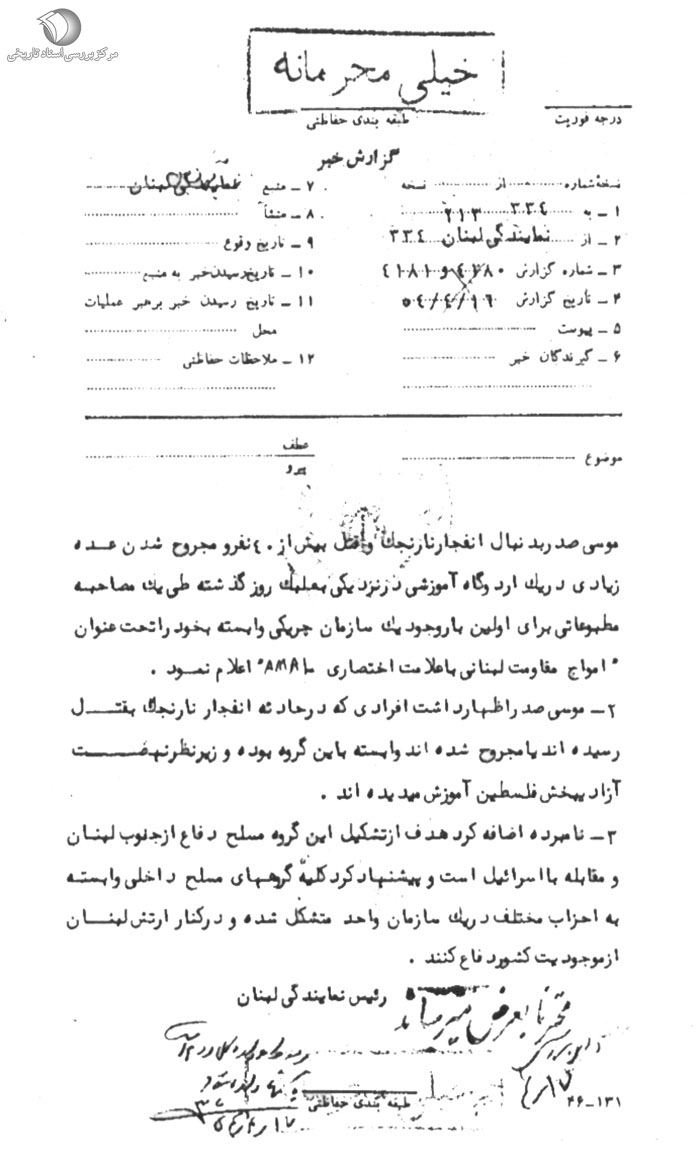 مرکز بررسی اسناد تاریخی
خیلی محرمانه
طبقه بندی حفاظتی
درجه فوریت
گزارش خبر
نسخهٔ شماره از نسخه
۱ـ به ۳۳۴ ۲۱۳
۲ـ از نمایندگی لبنان ۳۳۴
۳ـ شماره گزارش ۴۱۸۰ و ۴۱۸۱
۴ـ تاریخ گزارش ۵۴/۴/۱۶
۵ـ پیوست
۶ـ گیرندگان خبر
۷ـ منبع لبنان
۸ـ منشأ
۹ـ تاریخ وقوع
۱۰ـ تاریخ رسیدن خبر به منبع
۱۱ـ تاریخ رسیدن خبر برهبر عملیات
محل
۱۲ـ ملاحظات حفاظتی
موضوع
عطف
پیرو
موسی صدر بدنبال انفجار نارنجک و قتل بیش از ۴۰ نفر و مجروح شدن عده
زیادی در یک اردوگاه آموزشی در نزدیکی بعلبک روز گذشته طی یک مصاحبه
مطبوعاتی برای اولین بار وجود یک سازمان چریکی وابسته بخود را تحت عنوان
" امواج مقاومت لبنانی با علامت اختصاری AMAL" اعلام نمود .
۲ـ موسی صدر اظهار داشت افرادی که در حادثه انفجار نارنجک بقتل
رسیده اند یا مجروح شده اند وابسته باین گروه بوده و زیر نظر نهضت
آزادیبخش فلسطین آموزش میدیده اند .
۳ـ نامبرده اضافه کرد هدف از تشکیل این گروه مسلح دفاع از جنوب لبنان
و مقابله با اسرائیل است و پیشنهاد کرد کلیه گروههای مسلح داخلی وابسته
به احزاب مختلف در یک سازمان واحد متشکل شده و در کنار ارتش لبنان
از موجودیت کشور دفاع کنند .
رئیس نمایندگی لبنان
محترما بعرض میرساند
۱۷/۴
طبقه بندی حفاظتی
۱۳۱ـ۲۶